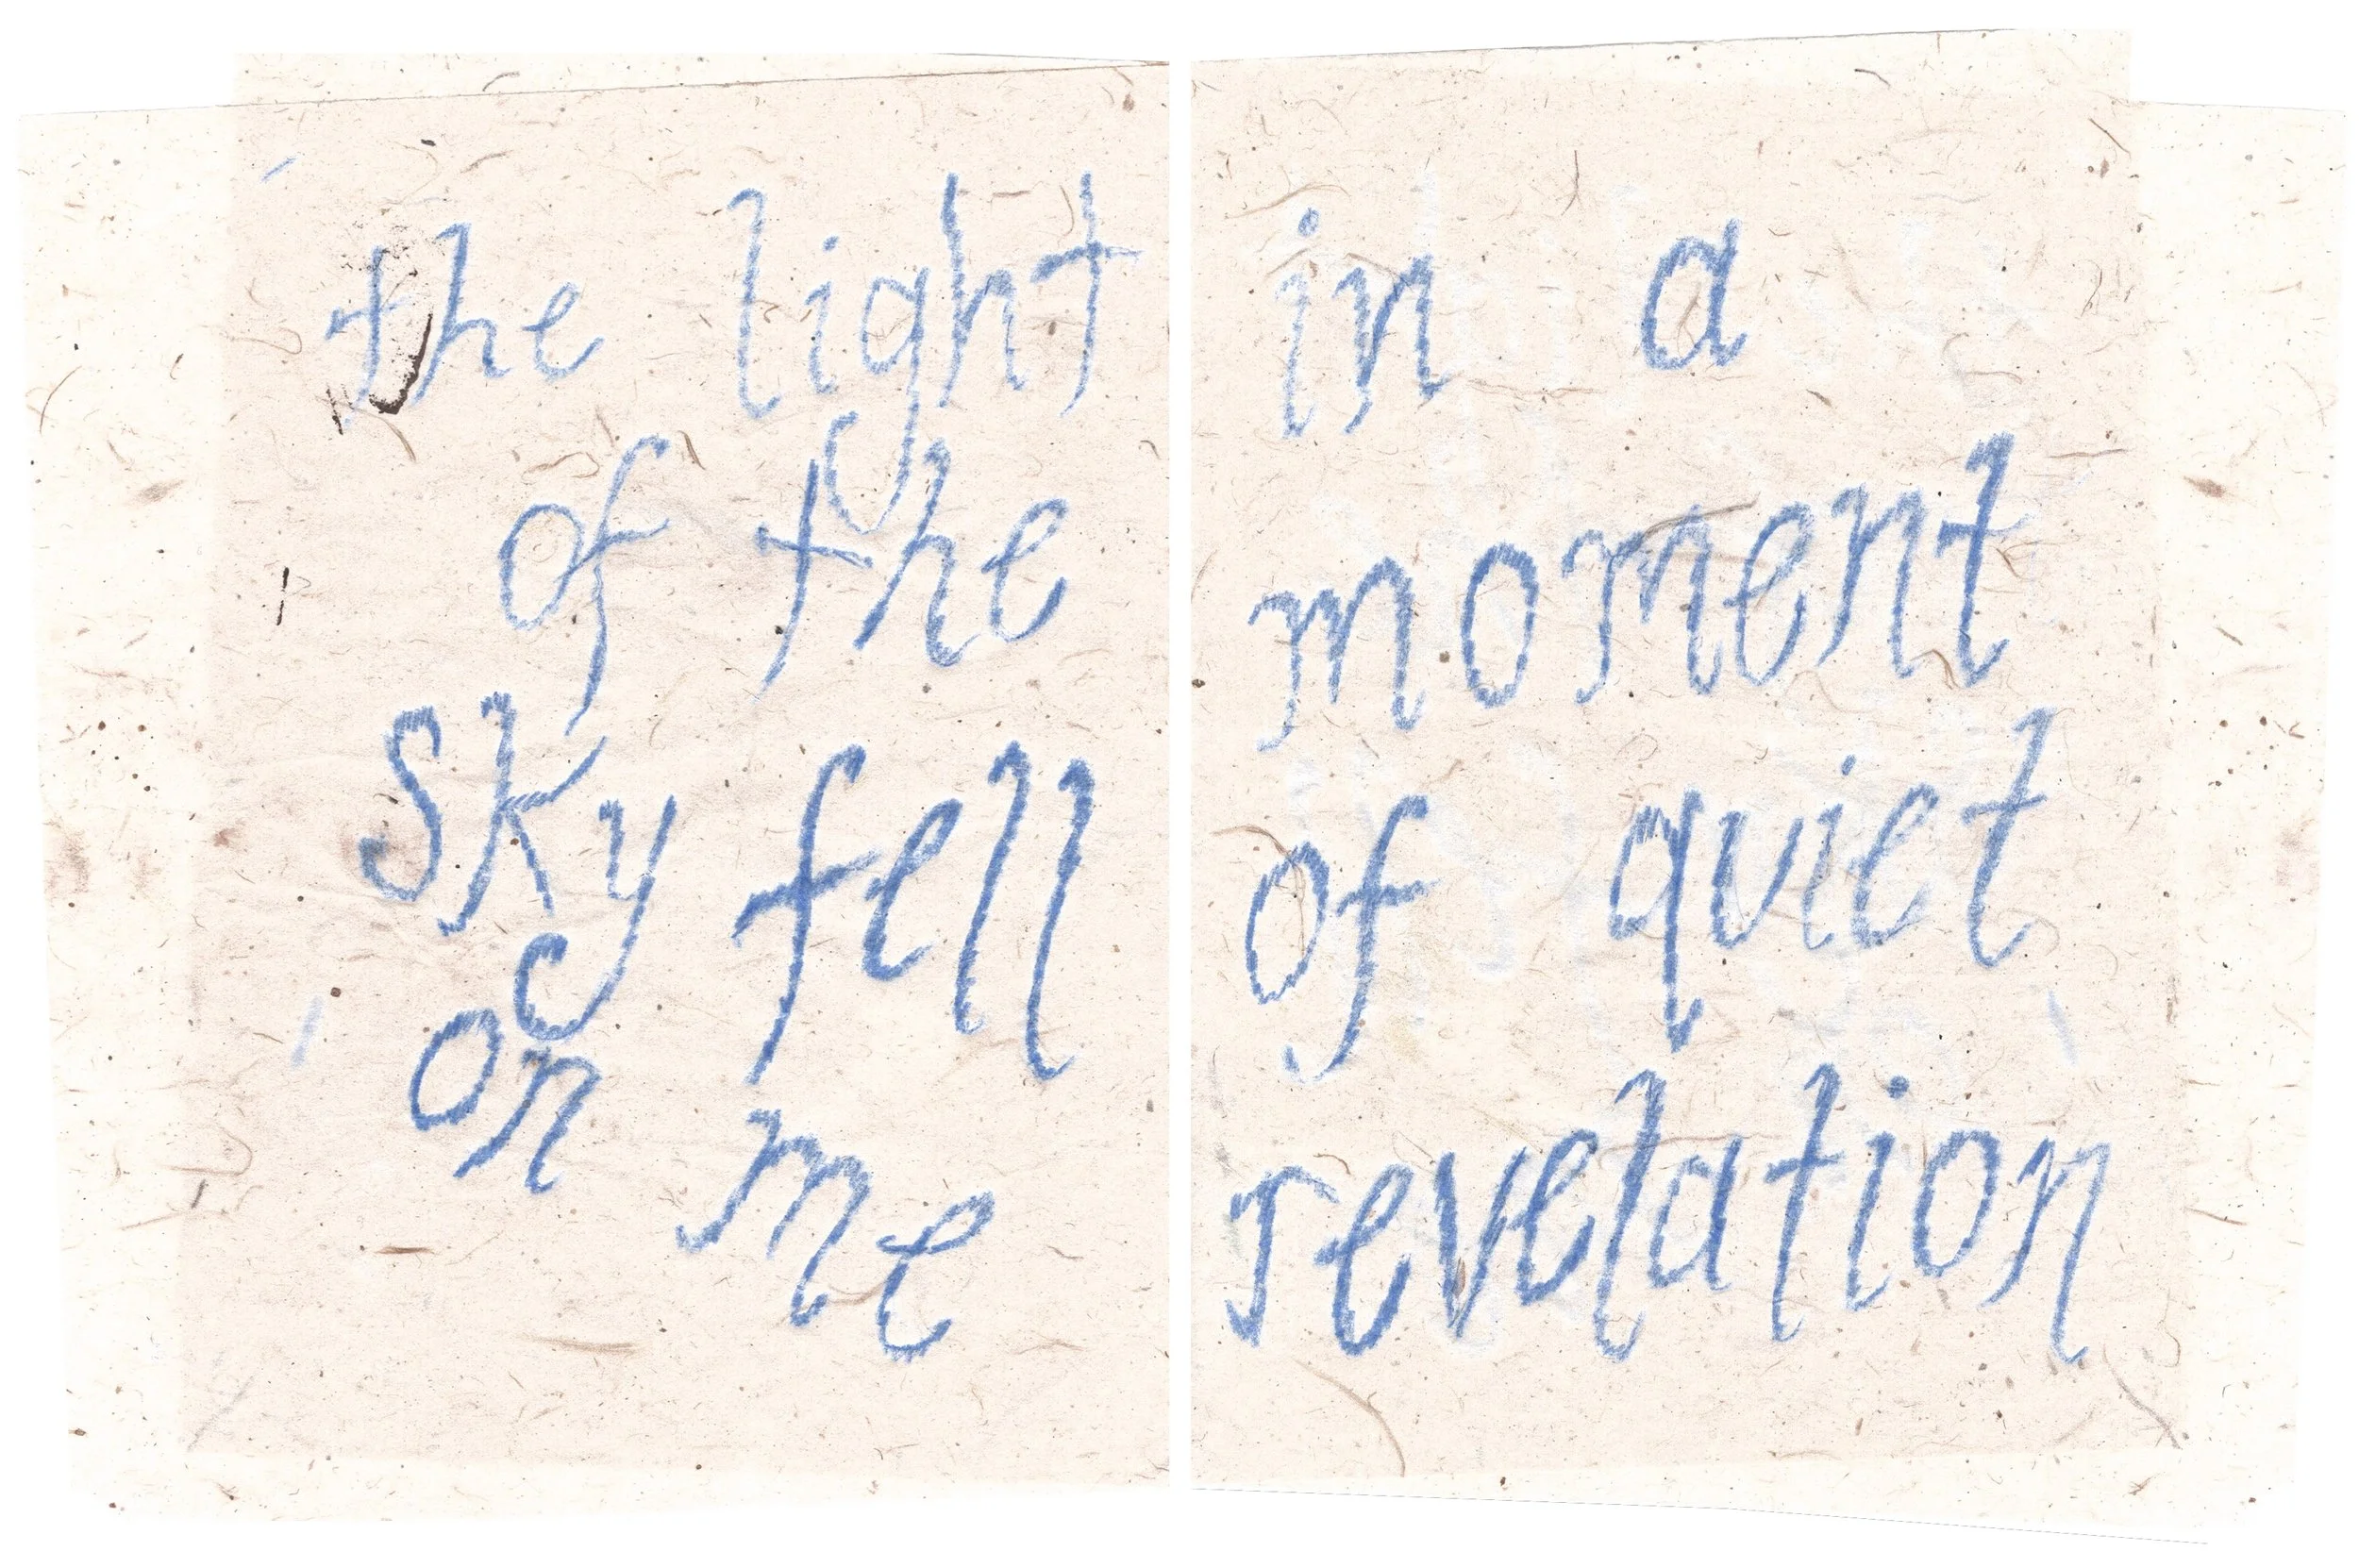 the light
of the
sky fell
on me
in a
moment
of quiet
revelation